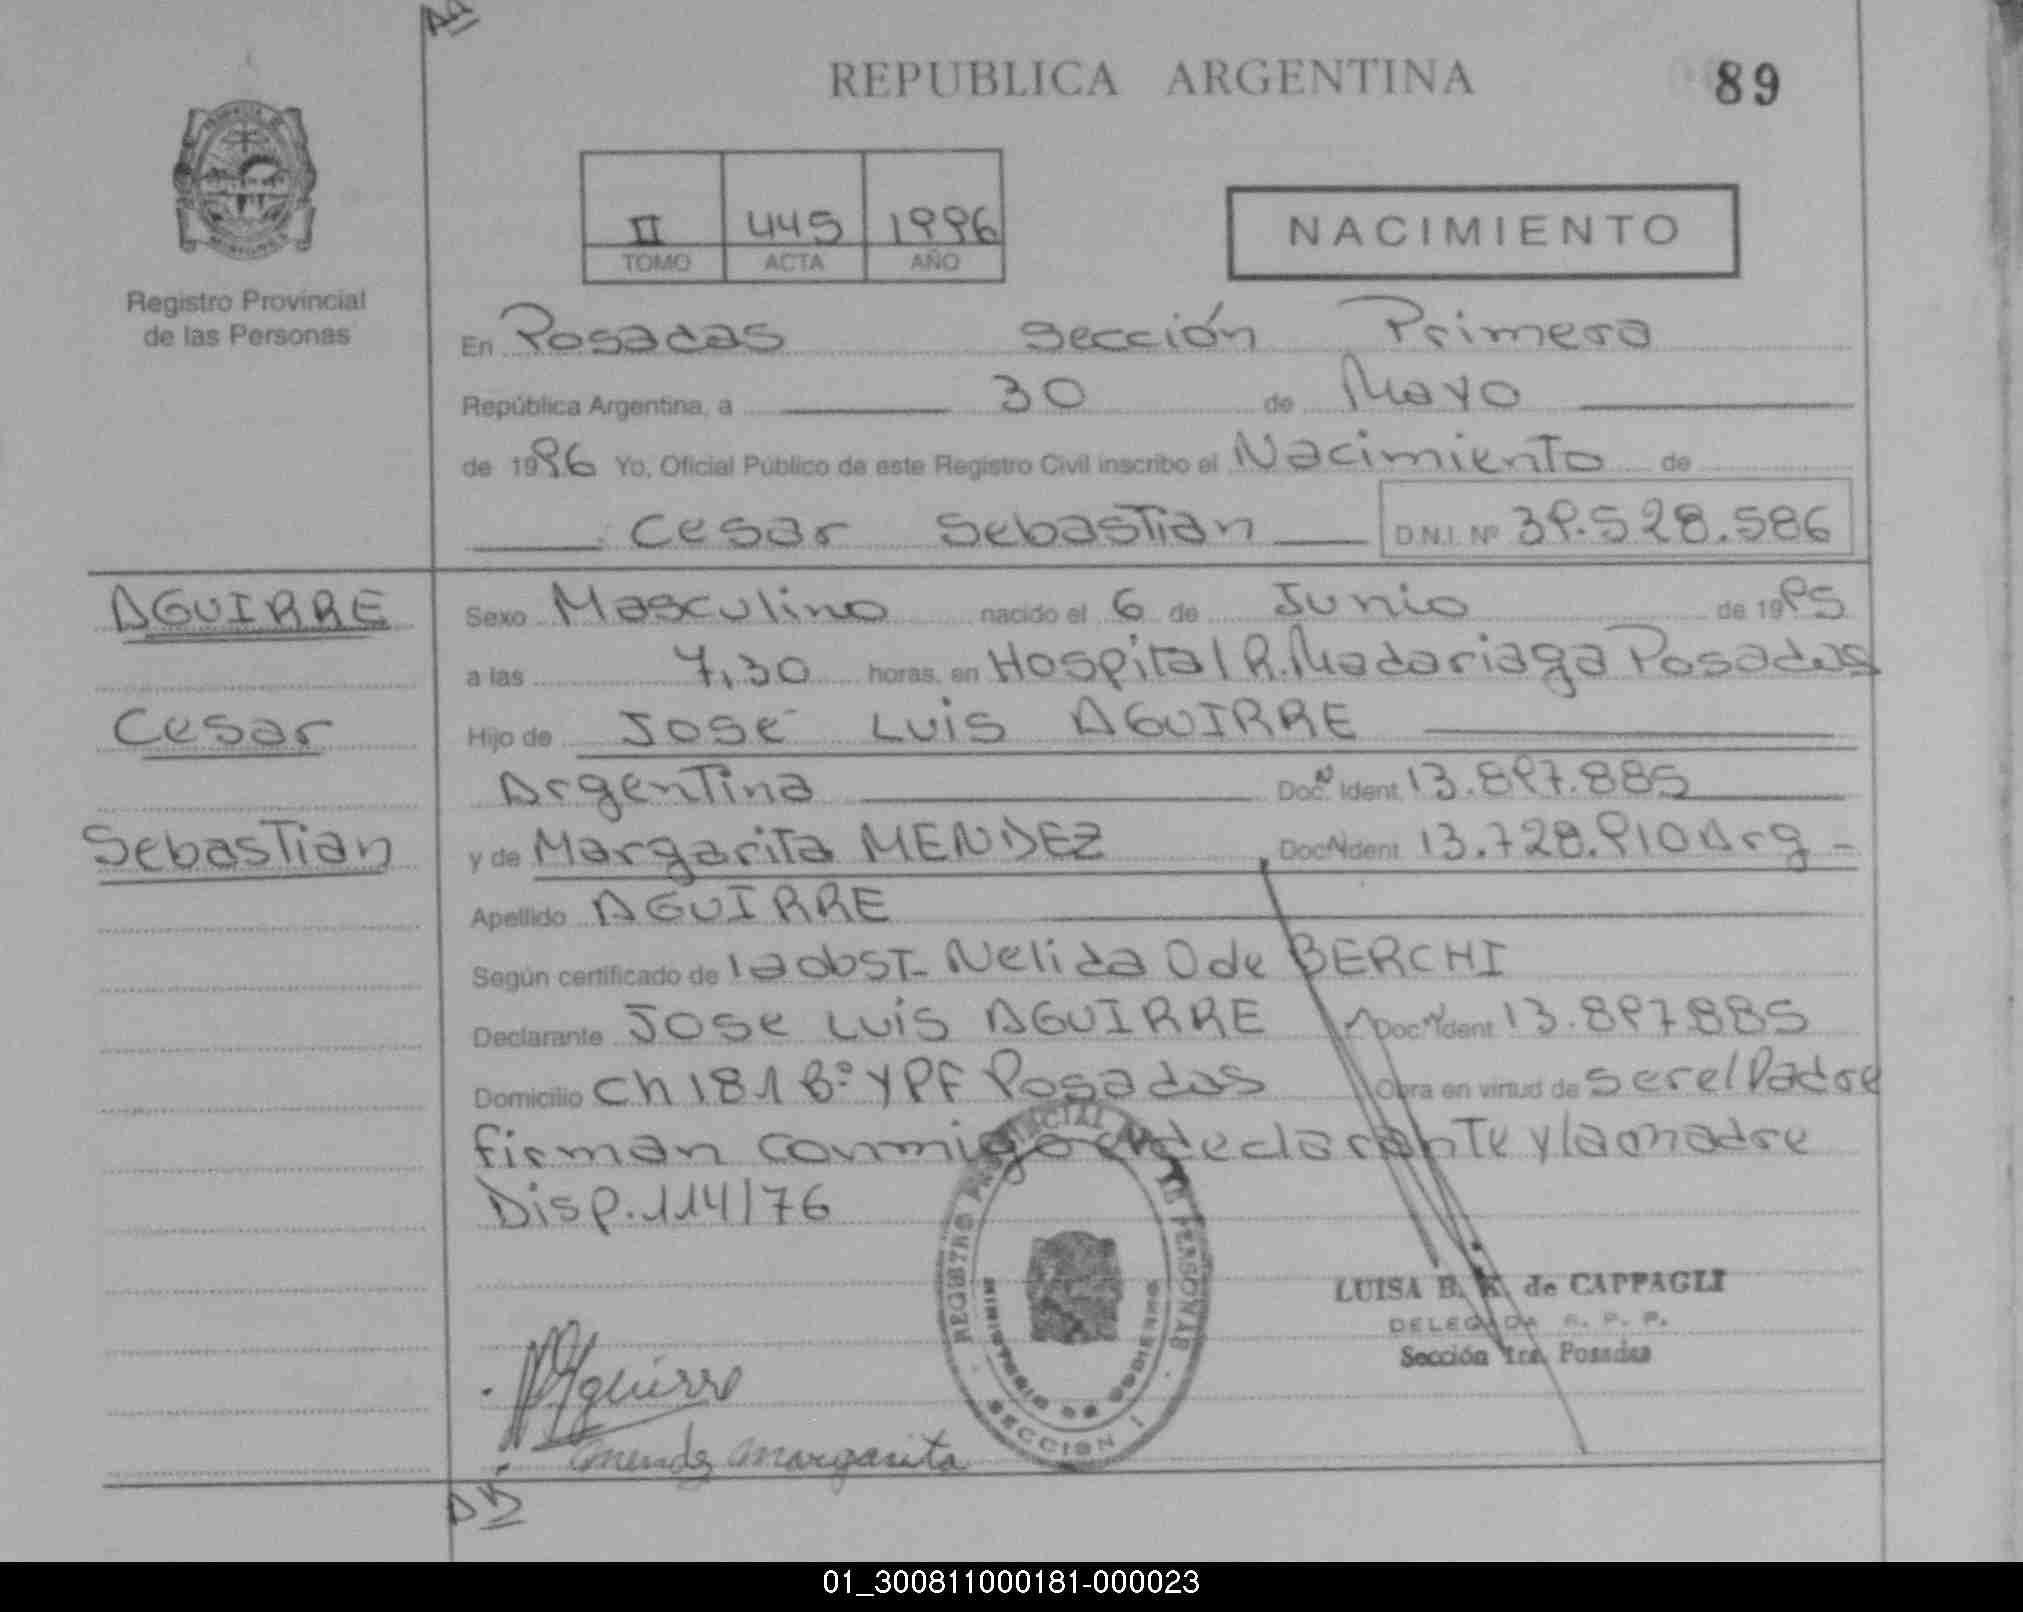 REPUBLICA ARGENTINA
89
II 445 1996
TOMO ACTA AÑO
NACIMIENTO
Registro Provincial
de las Personas
En Posadas Sección Primera
República Argentina, a 30 de Mayo
de 1996 Yo, Oficial Público de este Registro Civil inscribo el Nacimiento de
Cesar Sebastian D.N.I. Nº 39.528.586
AGUIRRE
Cesar
Sebastian
Sexo Masculino nacido el 6 de Junio de 1995
a las 7,30 horas, en Hospital R. Madariaga Posadas
Hijo de José Luis AGUIRRE
Argentina Doc. Ident. 13.897.885
y de Margarita MENDEZ Doc. Ident. 13.728.910 Arg
Apellido AGUIRRE
Según certificado de la obst. Nelida O de BERCHI
Declarante Jose Luis AGUIRRE Doc. Ident. 13.897.885
Domicilio Ch 181 Bº YPF Posadas Obra en virtud de ser el Padre
firman conmigo el declarante y la madre
Disp. 114/76
REGISTRO PROVINCIAL DE LAS PERSONAS
MINISTERIO DE GOBIERNO
SECCION 1
LUISA B. K. de CAPPAGLI
DELEGADA R. P. P.
Sección 1ra. Posadas
Aguirre
Mendez Margarita
01_300811000181-000023